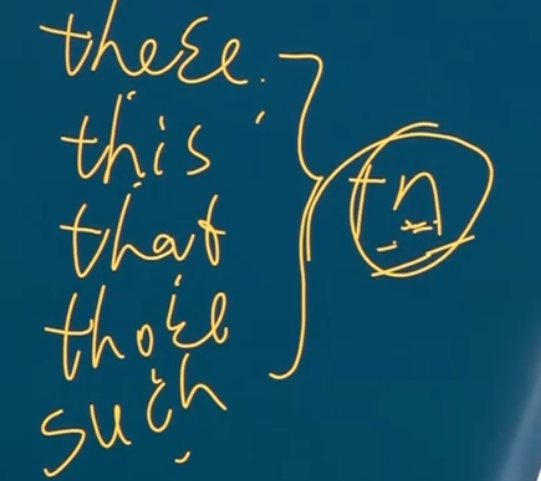 these
this
that
those
such
+n